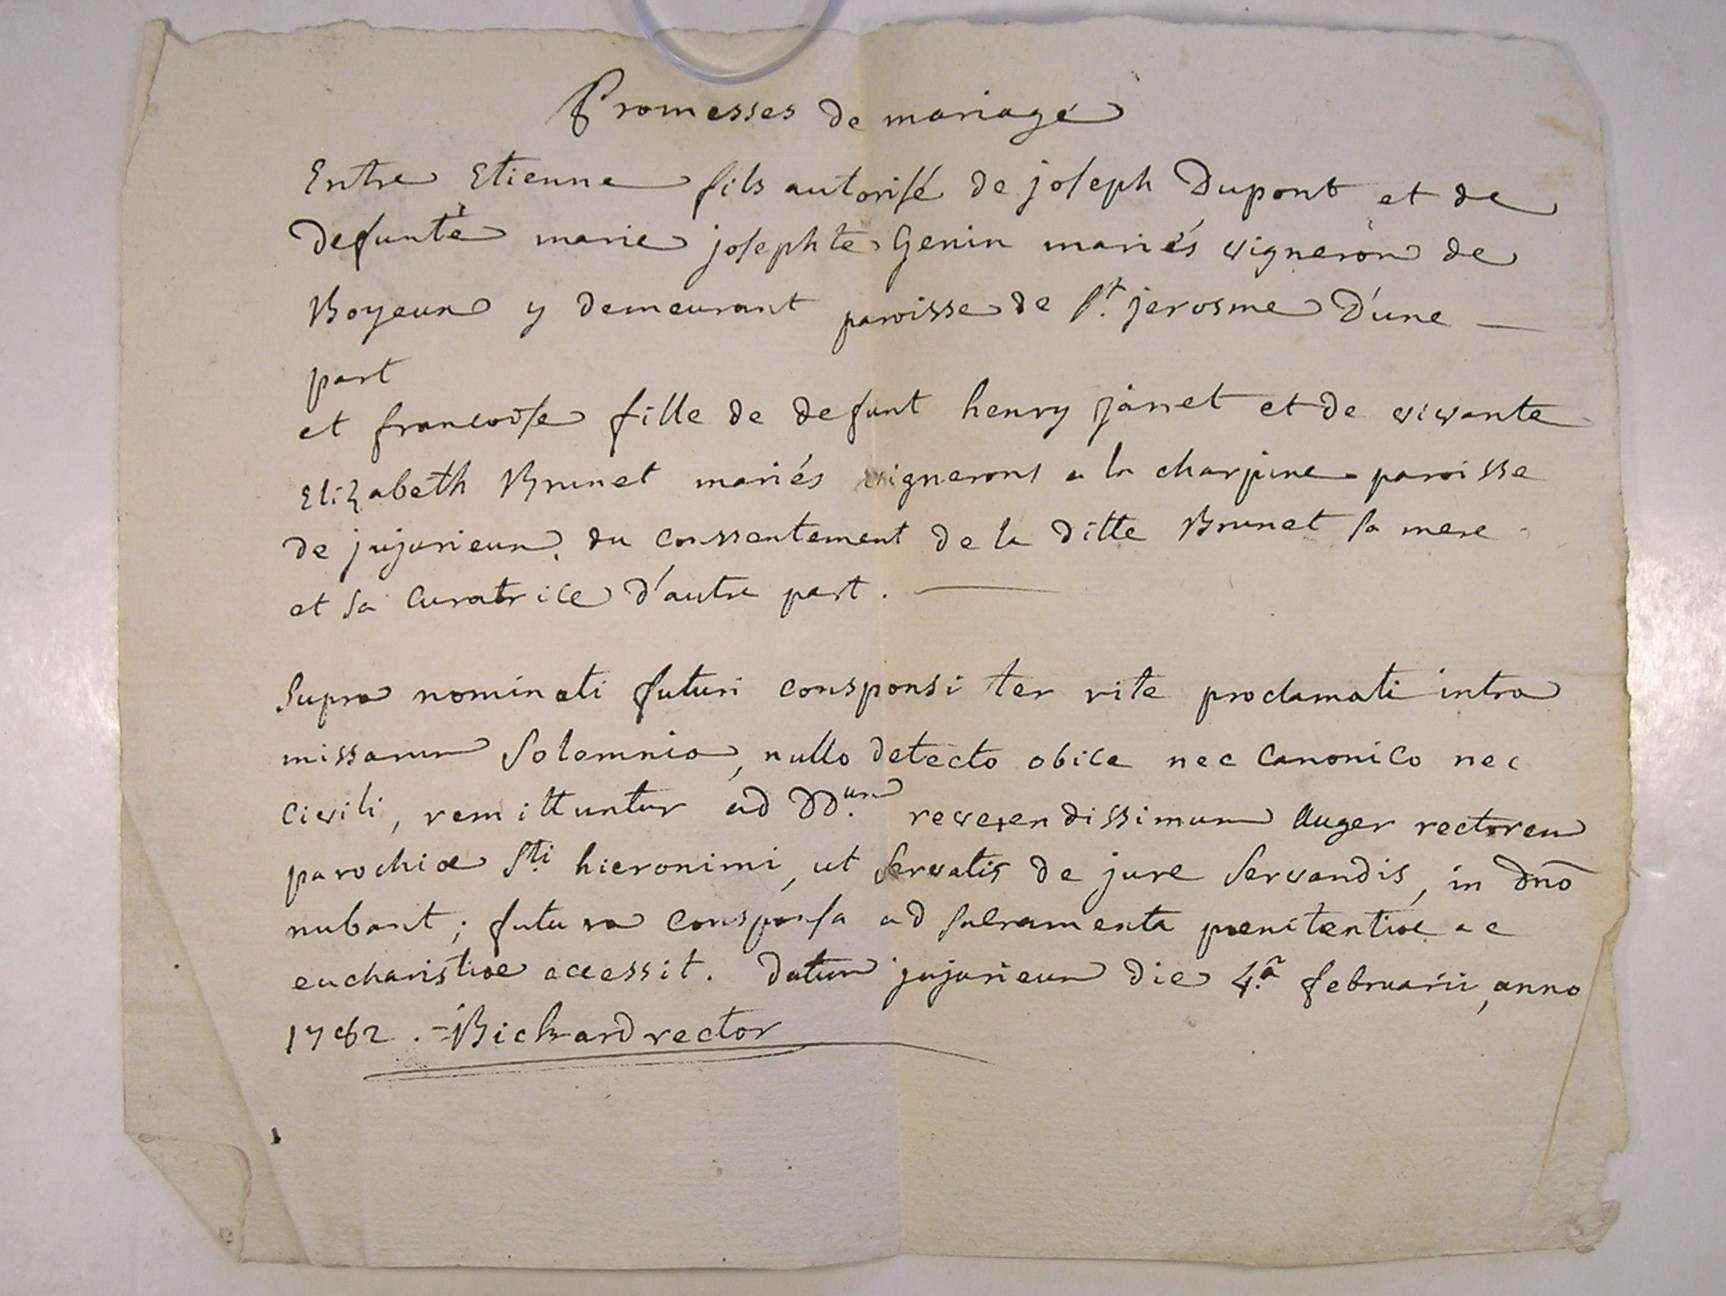 Promesses de mariage
Entre Etienne fils autorisé de joseph Dupont et de
defunte marie josephte Genin mariés vigneron de
Boyeux y demeurant paroisse de St. jerosme D'une
part
et francoise fille de defunt henry janet et de vivante
Elizabeth Brunet mariés vignerons a la charpine paroisse
de jujurieux, du conssentement de la ditte Brunet sa mere
et sa curatrice d'autre part.
Supra nominati futuri consponsi ter rite proclamati intra
missarum Solemnia, nullo detecto obice nec canonico nec
civili, remittuntur ad DD.um reverendissimum Auger rectorem
parochiæ Sti hieronimi, ut Servatis de jure Servandis, in dno
nubant; futura consponsa ad sacramenta pœnitentiæ ac
eucharistiæ accessit. Datum jujurieux die 4.a februarii, anno
1782. Bickard rector